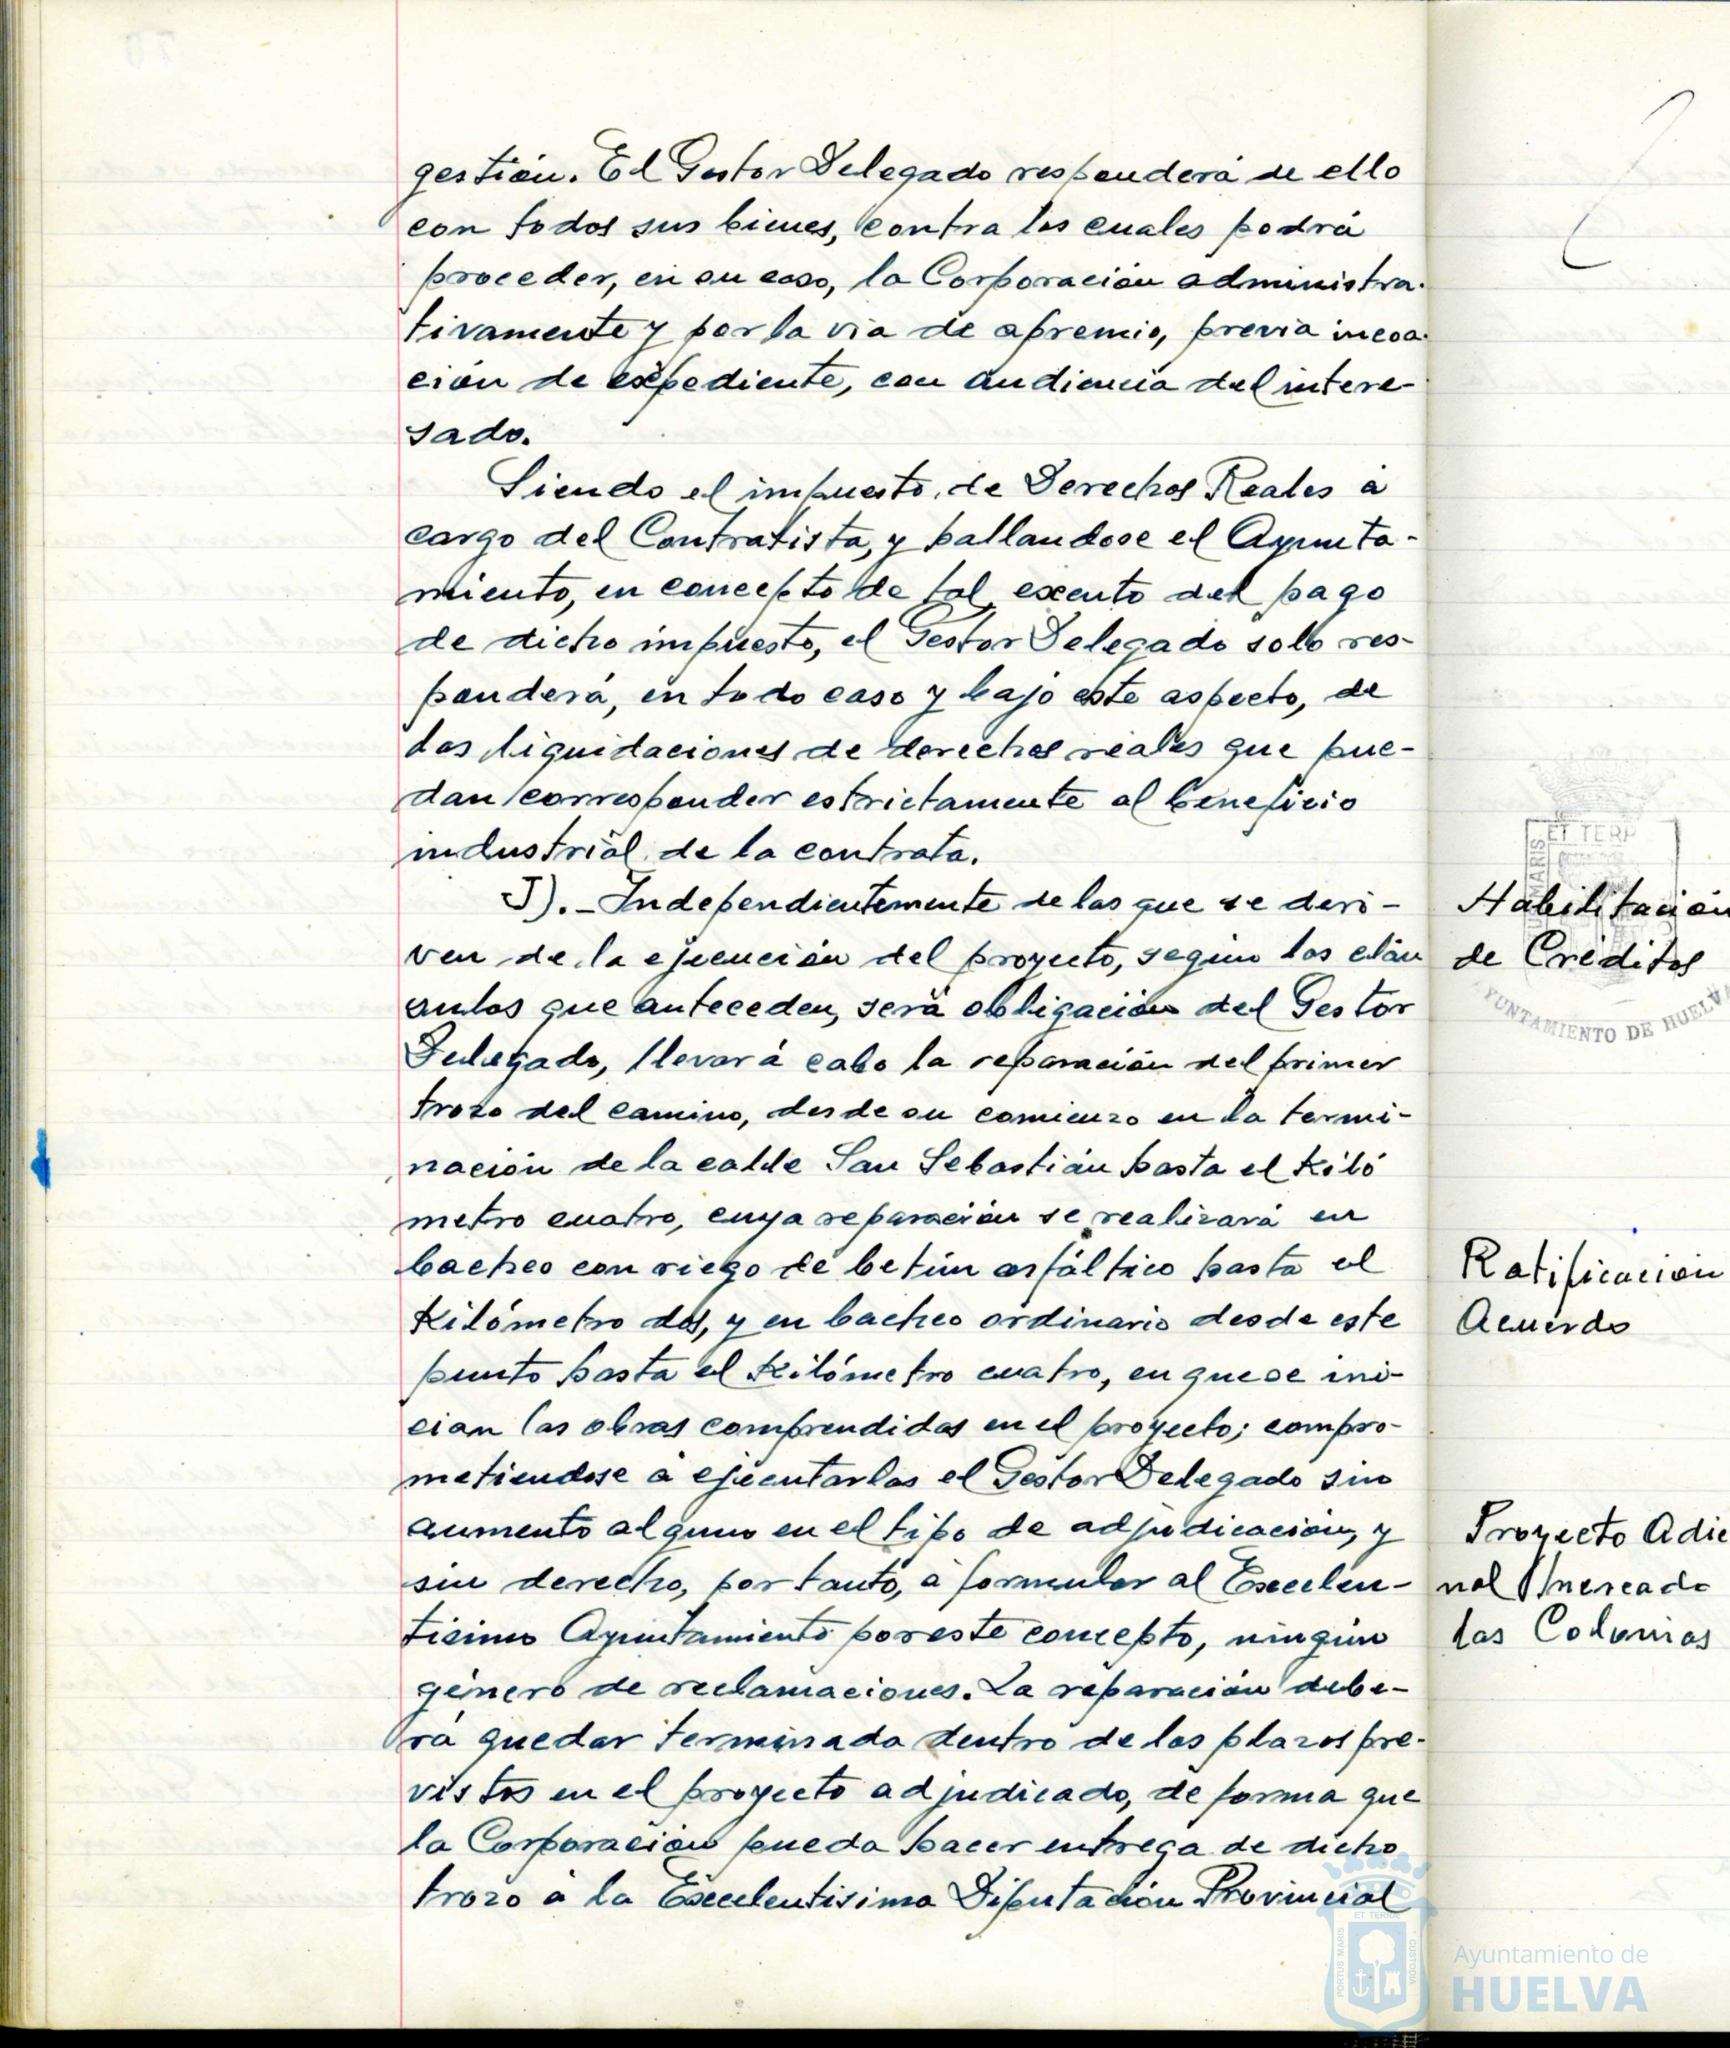 gestión. El Gestor Delegado responderá de ello
con todos sus bienes, contra los cuales podrá
proceder, en su caso, la Corporación administra-
tivamente y por la via de apremio, previa incoa-
ción de expediente, con audiencia del intere-
sado.
Siendo el impuesto de Derechos Reales á
cargo del Contratista, y hallandose el Ayunta-
miento, en concepto de tal, exento del pago
de dicho impuesto, el Gestor Delegado solo res-
ponderá, en todo caso y bajo este aspecto, de
las liquidaciones de derechos reales que pue-
dan corresponder estrictamente al beneficio
industrial de la contrata.
J).- Independientemente de las que se deri-
ven de la ejecución del proyecto, según las cláu
sulas que anteceden, será obligación del Gestor
Delegado, llevar á cabo la reparación del primer
trozo del camino, desde su comienzo en la termi-
nación de la calle San Sebastián hasta el Kiló
metro cuatro, cuya reparación se realizará en
bacheo con riego de betún asfáltico hasta el
Kilómetro dos, y en bacheo ordinario desde este
punto hasta el Kilómetro cuatro, en que se ini-
cian las obras comprendidas en el proyecto; compro-
metiendose á ejecutarlas el Gestor Delegado sin
aumento alguno en el tipo de adjudicación, y
sin derecho, por tanto, á formular al Excelen-
tisimo Ayuntamiento por este concepto, ningún
género de reclamaciones. La reparación debe-
rá quedar terminada dentro de los plazos pre-
vistos en el proyecto adjudicado, de forma que
la Corporación pueda hacer entrega de dicho
trozo á la Excelentisima Diputación Provincial
Habilitación
de Créditos
ET TERR
MARIS
AYUNTAMIENTO DE HUELVA
Ratificación
Acuerdo
Proyecto Adic
nal Mercado
las Colonias
PORTUS MARIS
ET TERRAE
CUSTODIA
Ayuntamiento de
HUELVA